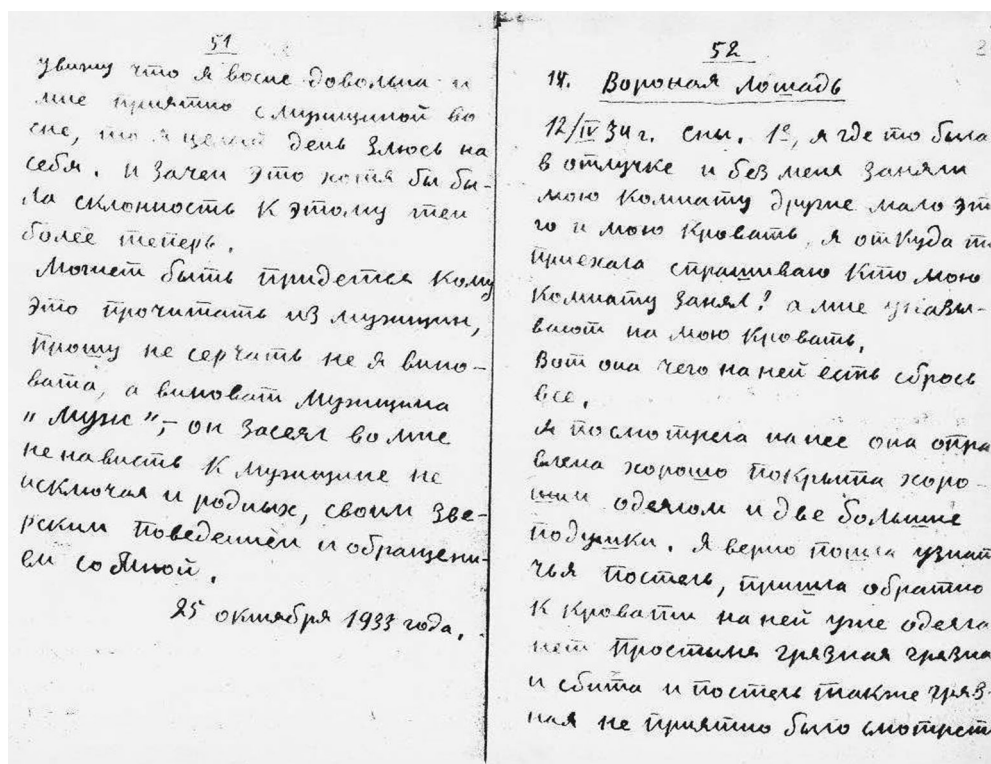 51
увижу что я восне довольна и
мне приятно с мужщиной во
сне, то я целый день злюсь на
себя. и зачем это хотя бы бы-
ла склонность к этому тем
более теперь.
Может быть придется кому
это прочитать из мужщин,
прошу не серчать не я вино-
вата, а виноват мужщина
„Муж", – он засеял во мне
не нависть к мужщине не
исключая и родных, своим зве-
рским поведением и обращени-
ем со мной.
25 октября 1933 года.
52
14. Вороная лошадь
12/IV 34 г. сны. 1е, я где то была
в отлучке и без меня заняли
мою комнату другие мало эт
го и мою кровать, я откуда т
приехала спрашиваю кто мою
комнату занял? а мне указы-
вают на мою кровать,
вот она чего на ней есть сбрось
все.
Я посмотрела на нее она опра
влена хорошо покрыта хоро-
шим одеялом и две большие
подушки. Я верно пошла узнат
чья постель, пришла обратно
к кровати на ней уже одеяла
нет простыня грязная грязна
и сбита и постель также гряз-
ная не приятно было смотреть